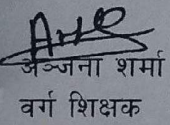 अञ्जना शर्मा
वर्ग शिक्षक